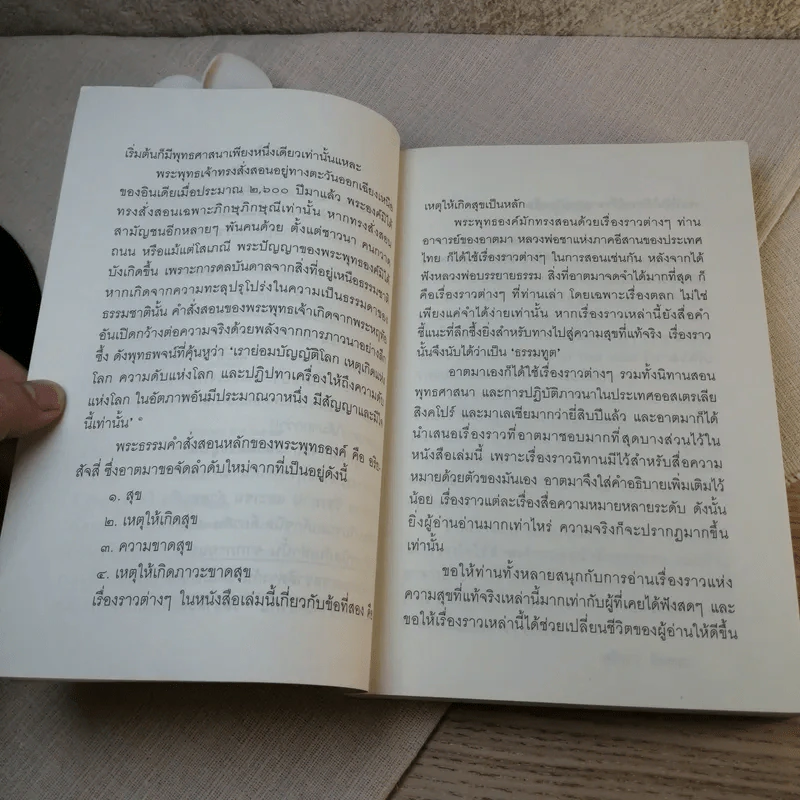 เริ่มต้นก็มีพุทธศาสนาเพียงหนึ่งเดียวเท่านั้นแหละ
พระพุทธเจ้าทรงสั่งสอนอยู่ทางตะวันออกเฉียงเหนือ
ของอินเดียเมื่อประมาณ ๒,๖๐๐ ปีมาแล้ว พระองค์มิได้
ทรงสั่งสอนเฉพาะภิกษุภิกษุณีเท่านั้น หากทรงสั่งสอน
สามัญชนอีกหลายๆ พันคนด้วย ตั้งแต่ชาวนา คนกวาด
ถนน หรือแม้แต่โสเภณี พระปัญญาของพระพุทธองค์มิได้
บังเกิดขึ้น เพราะการดลบันดาลจากสิ่งที่อยู่เหนือธรรมชาติ
หากเกิดจากความทะลุปรุโปร่งในความเป็นธรรมดาของ
ธรรมชาตินั้น คำสั่งสอนของพระพุทธเจ้าเกิดจากพระหฤทัย
อันเปิดกว้างต่อความจริงด้วยพลังจากการภาวนาอย่างลึก
ซึ้ง ดังพุทธพจน์ที่คุ้นหูว่า ‘เราย่อมบัญญัติโลก เหตุเกิดแห่ง
โลก ความดับแห่งโลก และปฏิปทาเครื่องให้ถึงความดับ
แห่งโลก ในอัตภาพอันมีประมาณวาหนึ่ง มีสัญญาและมีใจ
นี้เท่านั้น’
พระธรรมคำสั่งสอนหลักของพระพุทธองค์ คือ อริย-
สัจสี่ ซึ่งอาตมาขอจัดลำดับใหม่จากที่เป็นอยู่ดังนี้
๑. สุข
๒. เหตุให้เกิดสุข
๓. ความขาดสุข
๔. เหตุให้เกิดภาวะขาดสุข
เรื่องราวต่างๆ ในหนังสือเล่มนี้เกี่ยวกับข้อที่สอง คือ
เหตุให้เกิดสุขเป็นหลัก
พระพุทธองค์มักทรงสอนด้วยเรื่องราวต่างๆ ท่าน
อาจารย์ของอาตมา หลวงพ่อชาแห่งภาคอีสานของประเทศ
ไทย ก็ได้ใช้เรื่องราวต่างๆ ในการสอนเช่นกัน หลังจากได้
ฟังหลวงพ่อบรรยายธรรม สิ่งที่อาตมาจดจำได้มากที่สุด ก็
คือเรื่องราวต่างๆ ที่ท่านเล่า โดยเฉพาะเรื่องตลก ไม่ใช่
เพียงแค่จำได้ง่ายเท่านั้น หากเรื่องราวเหล่านี้ยังสื่อคำ
ชี้แนะที่ลึกซึ้งยิ่งสำหรับทางไปสู่ความสุขที่แท้จริง เรื่องราว
นั้นจึงนับได้ว่าเป็น ‘ธรรมทูต’
อาตมาเองก็ได้ใช้เรื่องราวต่างๆ รวมทั้งนิทานสอน
พุทธศาสนา และการปฏิบัติภาวนาในประเทศออสเตรเลีย
สิงคโปร์ และมาเลเซียมากว่ายี่สิบปีแล้ว และอาตมาก็ได้
นำเสนอเรื่องราวที่อาตมาชอบมากที่สุดบางส่วนไว้ใน
หนังสือเล่มนี้ เพราะเรื่องราวนิทานมีไว้สำหรับสื่อความ
หมายด้วยตัวของมันเอง อาตมาจึงใส่คำอธิบายเพิ่มเติมไว้
น้อย เรื่องราวแต่ละเรื่องสื่อความหมายหลายระดับ ดังนั้น
ยิ่งผู้อ่านอ่านมากเท่าไหร่ ความจริงก็จะปรากฏมากขึ้น
เท่านั้น
ขอให้ท่านทั้งหลายสนุกกับการอ่านเรื่องราวแห่ง
ความสุขที่แท้จริงเหล่านี้มากเท่ากับผู้ที่เคยได้ฟังสดๆ และ
ขอให้เรื่องราวเหล่านี้ได้ช่วยเปลี่ยนชีวิตของผู้อ่านให้ดีขึ้น